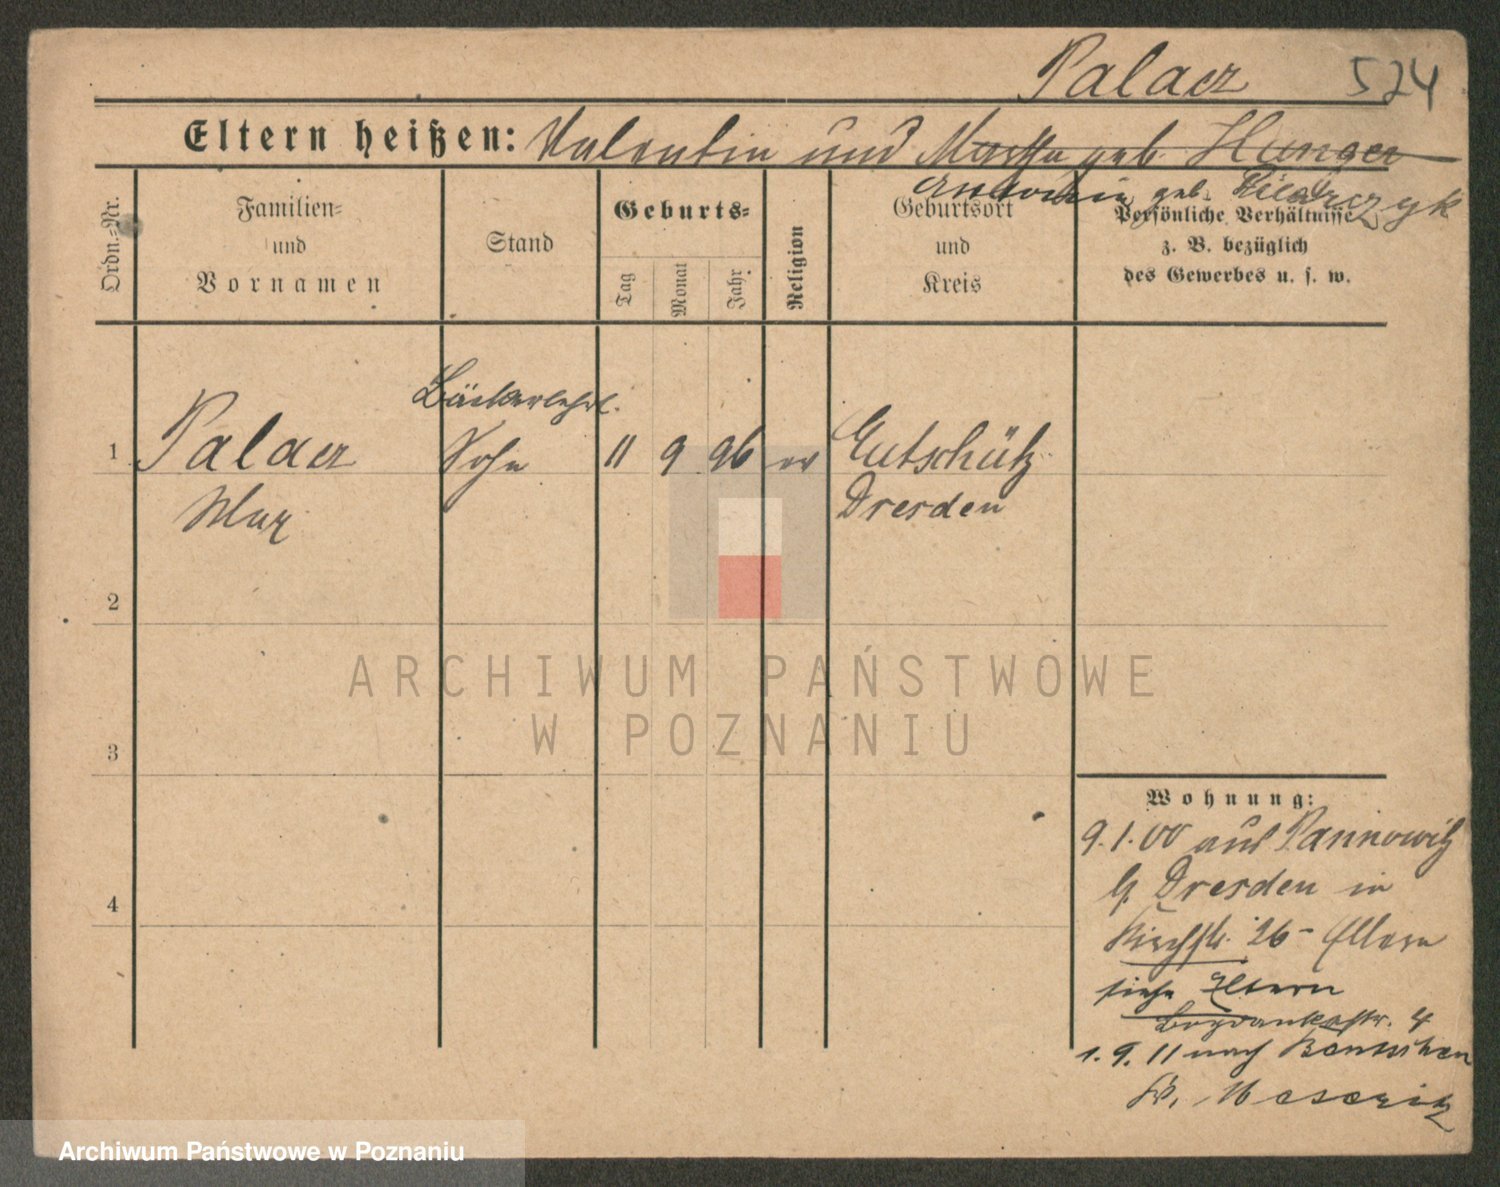 Palacz 524
Eltern heißen: Valentin und Martha geb. Hunger
Antonie geb.
Ordn.-Nr.
Familien-
und
Vornamen
Stand
Geburts-
Tag
Monat
Jahr
Religion
Geburtsort
und
Kreis
Persönliche Verhältnisse
z. B. bezüglich
des Gewerbes u. s. w.
Bäckerlehrl.
1 Palacz Sohn 11 9 96 ev Gutschütz
Max Dresden
2
3
4
ARCHIWUM PAŃSTWOWE
W POZNANIU
Wohnung:
9.1.00 aus Pannowitz
b. Dresden in
Kirchstr. 26 - Eltern
siehe Eltern
Bogdankastr. 4
1.9.11 nach
Kr. Meseritz
Archiwum Państwowe w Poznaniu